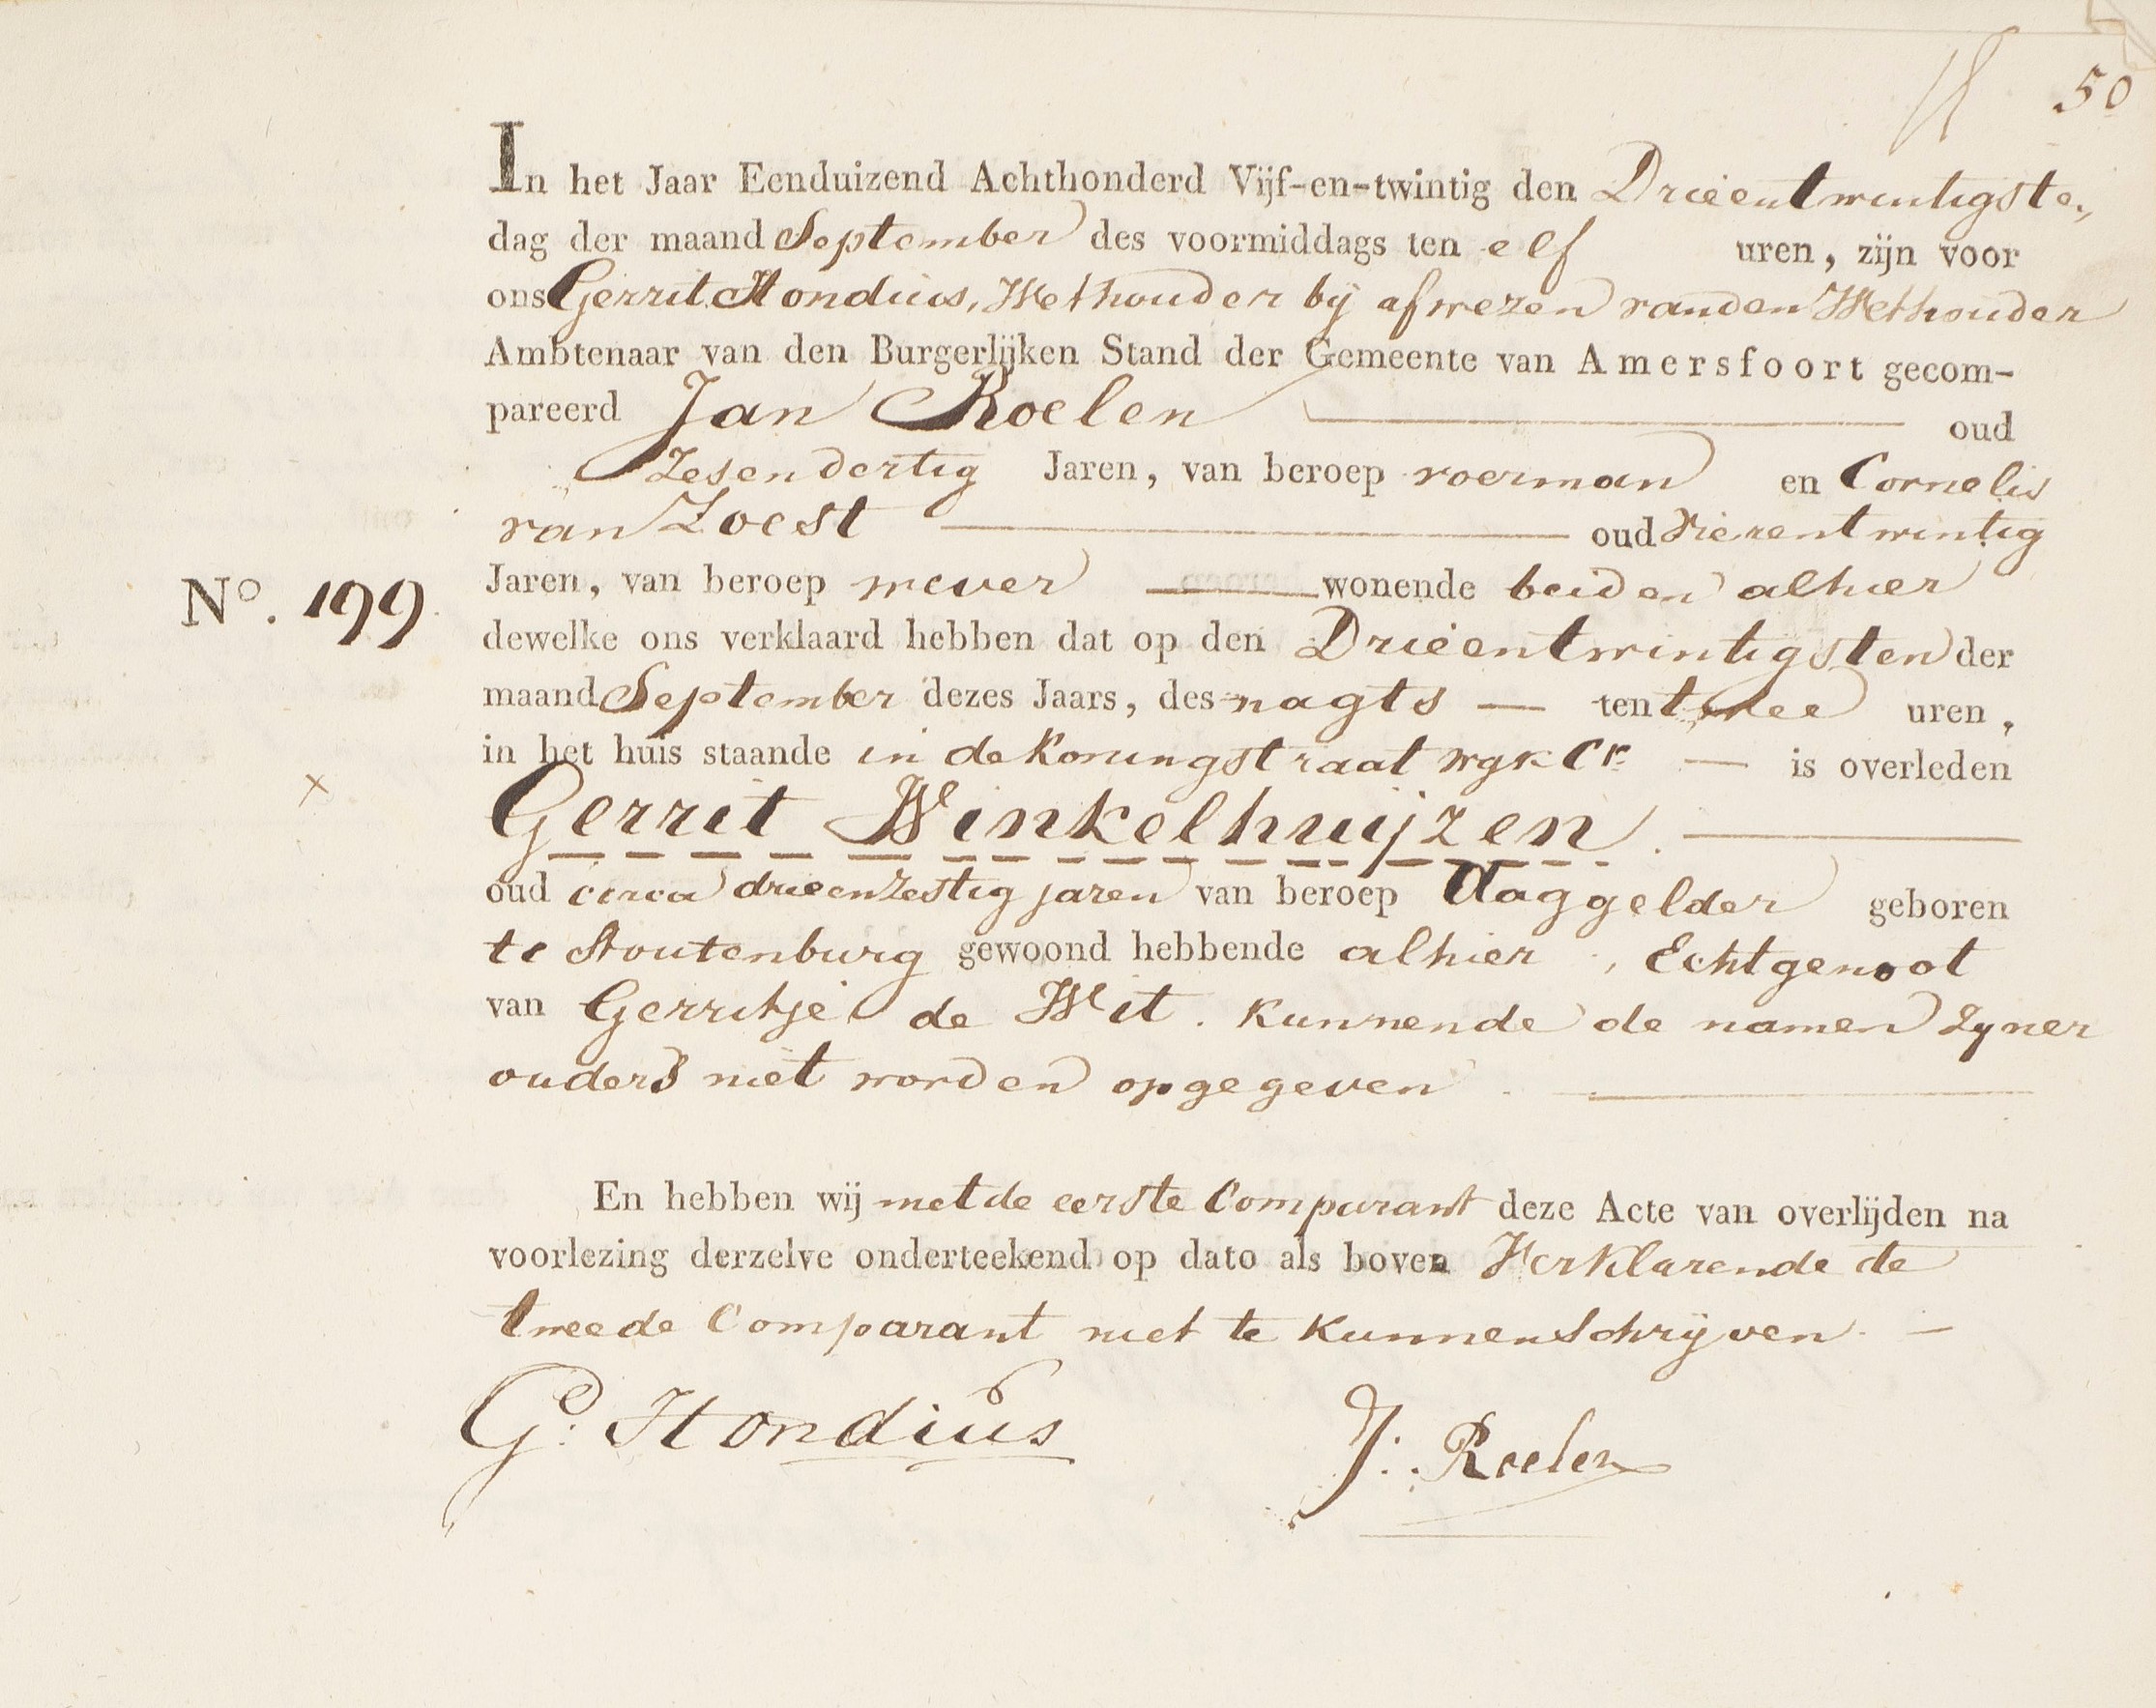 50
In het Jaar Eenduizend Achthonderd Vijf-en-twintig den Drieentwintigste,
dag der maand September des voormiddags ten elf uren, zijn voor
ons Gerrit Hondius, Wethouder bij afwezen van den Wethouder
Ambtenaar van den Burgerlijken Stand der Gemeente van Amersfoort gecom-
pareerd Jan Roelen oud
Zesendertig Jaren, van beroep voerman en Cornelis
van Zoest oud vierentwintig
Jaren, van beroep wever wonende beiden alhier
No. 199
dewelke ons verklaard hebben dat op den Drieentwintigsten der
maand September dezes Jaars, des nagts — ten twee uren,
in het huis staande in de Koningstraat wyk C — is overleden
Gerrit Winkelhuijzen.
oud circa drieenzestig jaren van beroep daggelder geboren
te Stoutenburg gewoond hebbende alhier, Echtgenoot
van Gerritje de Wit. kunnende de namen zyner
ouders niet worden opgegeven.
En hebben wij met de eerste Comparant deze Acte van overlijden na
voorlezing derzelve onderteekend op dato als boven Verklarende de
tweede Comparant niet te kunnen Schrijven. —
G: Hondius J: Roelen